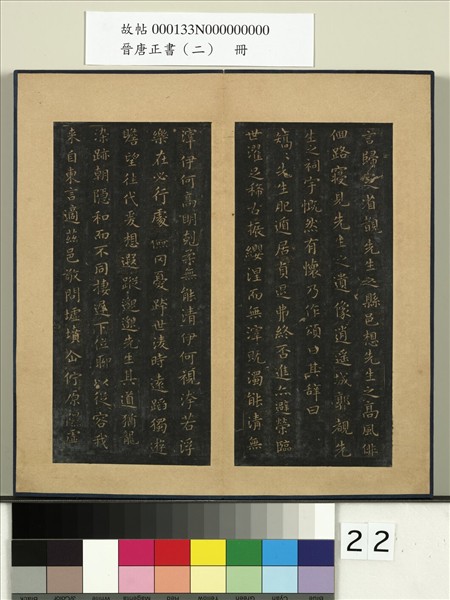 故帖 000133N000000000
晉唐正書（二） 冊
言歸定省覩先生之縣邑想先生之高風俳
佪路寢見先生之遺像逍遙城郭觀先
生之祠宇慨然有懷乃作頌曰其辭曰
矯々先生肥遁居貞退弗終否進亦避榮臨
世濯足稀古振纓涅而無滓既濁能清無
滓伊何高明剋柔無能清伊何視洿若浮
樂在必行處儉罔憂跨世淩時遠蹈獨遊
瞻望往代爰想遐蹤邈邈先生其道猶龍
染跡朝隱和而不同棲遲下位聊以從容我
來自東言適茲邑敬問墟墳企佇原隰墟
22
Black
3/Color
White
Magenta
Red
Yellow
Green
Cyan
Blue